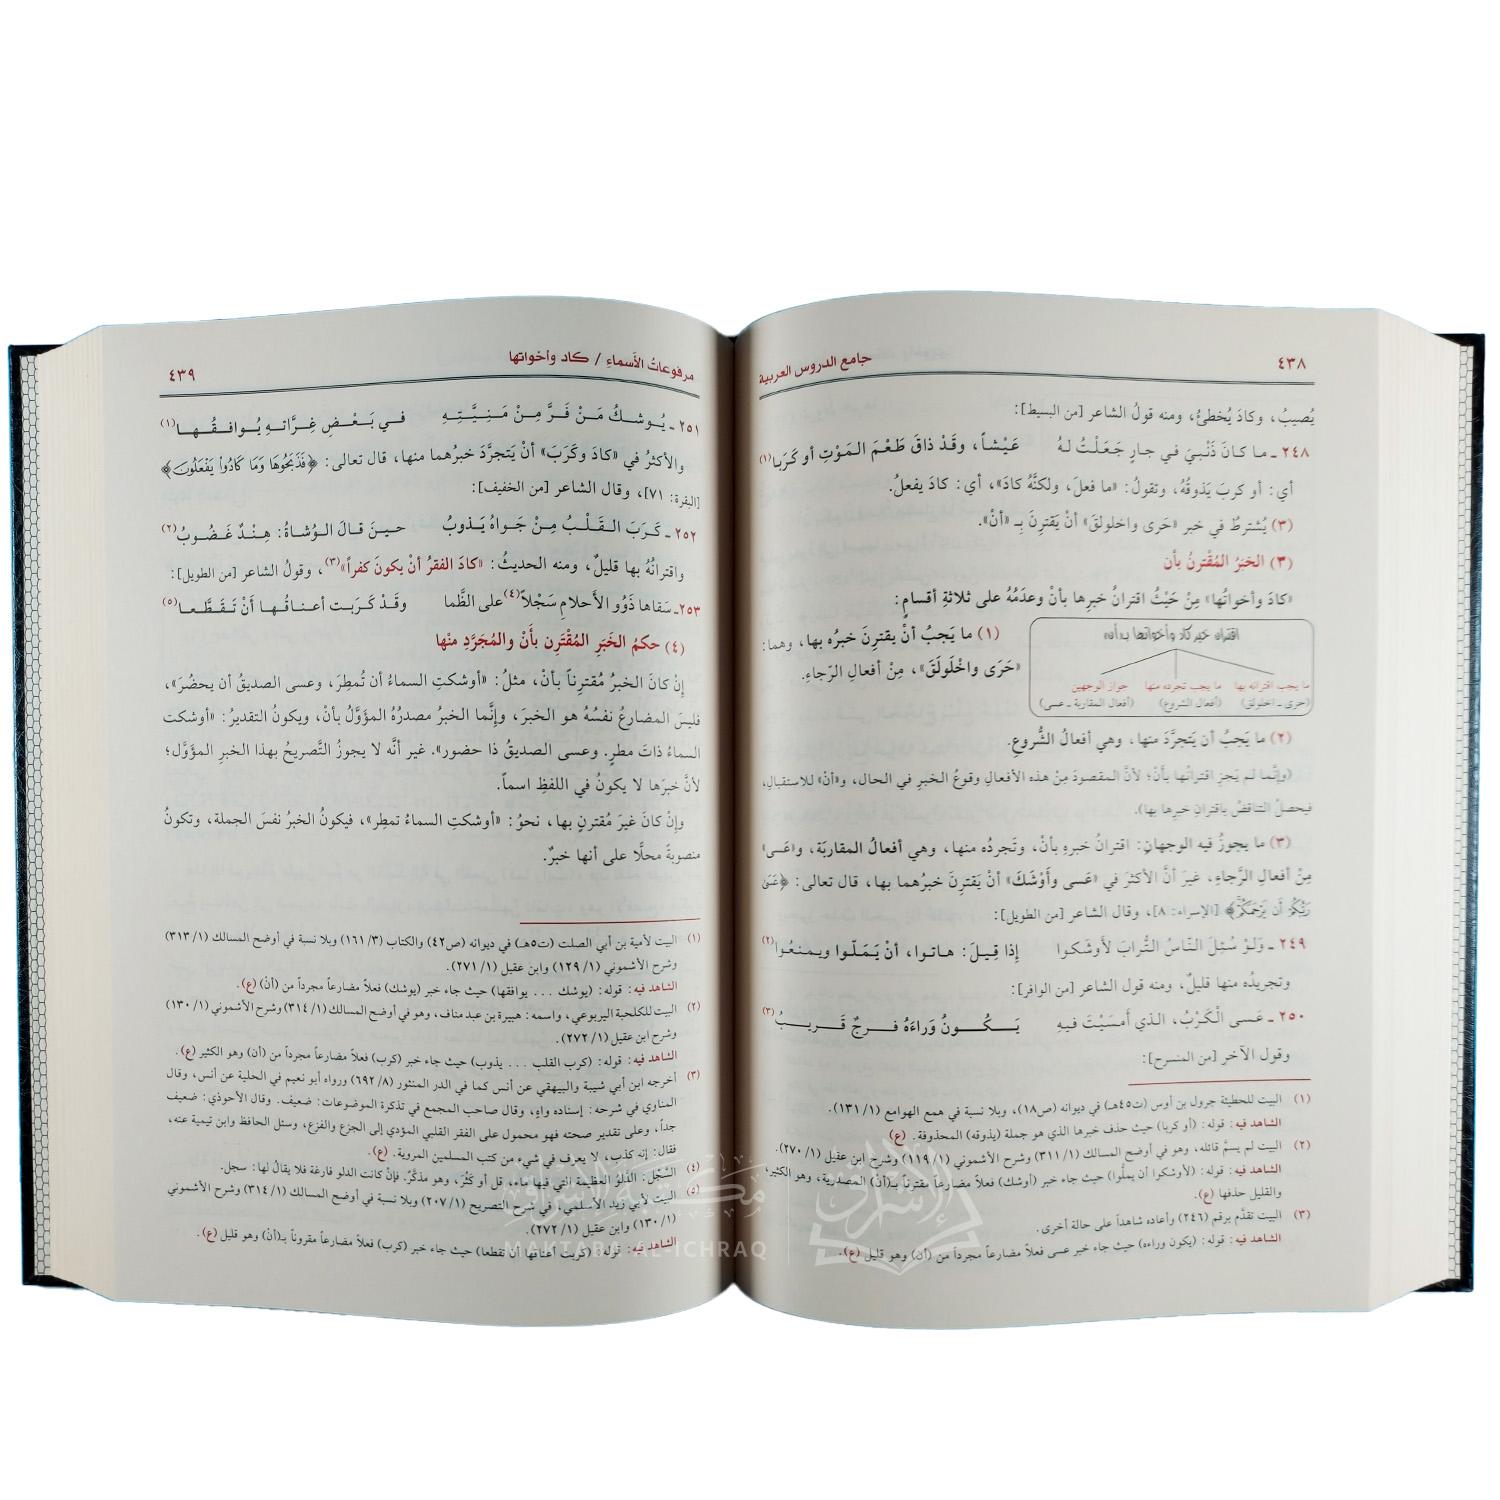 ٤٣٨
جامع الدروس العربية
يُصيبُ، وكادَ يُخطئُ، ومنه قولُ الشاعر [من البسيط]:
٢٤٨ ـ ما كـانَ ذَنْبيَ فـي جـارٍ جَـعَـلْتُ لـهُ عَيْشاً، وقَدْ ذاقَ طَعْمَ المَوْتِ أو كَرَبا (١)
أي: أو كربَ يَذوقُهُ، وتقولُ: «ما فعلَ، ولكنَّهُ كادَ»، أي: كادَ يفعلُ.
(٣) يُشترطُ في خبر «حَرى واخلولقَ» أنْ يقترِنَ بـ «أنْ».
(٣) الخبَرُ المُقْترنُ بأن
«كادَ وأخواتُها» مِنْ حَيْثُ اقترانُ خبرِها بأنْ وعدَمُهُ على ثلاثةِ أقسامٍ:
(١) ما يَجبُ أنْ يقترنَ خبرُه بها، وهما:
«حَرَى واخْلَولَقَ»، مِنْ أفعالِ الرّجاءِ.
اقتران خبر كاد وأخواتها بـ«أن»
ما يجب اقترانه بها ما يجب تجرده منها جواز الوجهين
(حرى ـ اخلولق) (أفعال الشروع) (أفعال المقاربة ـ عسى)
(٢) ما يَجبُ أن يَتجرَّدَ منها، وهي أفعالُ الشُّروعِ.
(وإنَّما لم يَجزِ اقترانُها بأنْ؛ لأنَّ المقصودَ مِنْ هذه الأفعالِ وقوعُ الخبرِ في الحال، و«أنْ» للاستقبالِ،
فيحصلُ التناقضُ باقترانِ خبرِها بها).
(٣) ما يجوزُ فيه الوجهانِ: اقترانُ خبرِهِ بأنْ، وتَجردُه منها، وهي أفعالُ المقاربَة، و«عَسى»
مِنْ أفعالِ الرَّجاءِ، غيرَ أنَّ الأكثرَ في «عَسى وأَوْشَكَ» أنْ يَقترنَ خبرُهما بها، قال تعالى: ﴿عَسَىٰ
رَبُّكُمْ أَن يَرْحَمَكُمْ﴾ [الإسراء: ٨]، وقال الشاعر [من الطويل]:
٢٤٩ ـ وَلَوْ سُئِلَ النّاسُ التُّرابَ لأَوشَكُوا إِذا قِيلَ: هاتوا، أنْ يَمَلّوا ويمنعُوا (٢)
وتجريدُه منها قليلٌ، ومنه قول الشاعر [من الوافر]:
٢٥٠ ـ عَـسى الْكَرْبُ، الـذي أَمسَيْتَ فيـهِ يَـكُـونُ وَراءَهُ فـرجٌ قَـريـبُ (٣)
وقول الآخر [من المنسرح]:
(١) البيت للحطيئة جرول بن أوس (ت٤٥هـ) في ديوانه (ص١٨)، وبلا نسبة في همع الهوامع (١/ ١٣١).
الشاهد فيه: قوله: (أو كربا) حيث حذف خبرها الذي هو جملة (يذوقه) المحذوفة. (ع)
(٢) البيت لم يسمَّ قائله، وهو في أوضح المسالك (١/ ٣١١) وشرح الأشموني (١/ ١١٩) وشرح ابن عقيل (١/ ٢٧٠).
الشاهد فيه: قوله: (لأوشكوا أن يملّوا) حيث جاء خبر (أوشك) فعلاً مضارعاً مقترناً بـ(أنْ) المصدرية، وهو الكثير،
والقليل حذفها (ع).
(٣) البيت تقدَّم برقم (٢٤٦) وأعاده شاهداً على حالة أخرى.
الشاهد فيه: قوله: (يكون وراءه) حيث جاء خبر عسى فعلاً مضارعاً مجرداً من (أن) وهو قليل (ع).
مرفوعاتُ الأسماءِ / كاد وأخواتها
٤٣٩
٢٥١ ـ يُـوشـكُ مَـنْ فَـرَّ مِـنْ مَـنِـيَّـتِـهِ فـي بَـعْـضِ غِـرَّاتـهِ يُـوافـقُـهـا (١)
والأكثرُ في «كادَ وكَرَبَ» أنْ يَتجرَّدَ خبرُهما منها، قال تعالى: ﴿فَذَبَحُوهَا وَمَا كَادُوا۟ يَفْعَلُونَ﴾
[البقرة: ٧١]، وقال الشاعر [من الخفيف]:
٢٥٢ ـ كَـرَبَ الـقَـلْـبُ مِـنْ جَـواهُ يَـذوبُ حـيـنَ قـالَ الـوُشـاةُ: هِـنْـدٌ غَـضُـوبُ (٢)
واقترانُهُ بها قليلٌ، ومنه الحديثُ: «كادَ الفقرُ أنْ يكونَ كفراً» (٣)، وقولُ الشاعر [من الطويل]:
٢٥٣ـ سَقاها ذَوُو الأَحلامِ سَجْلاً (٤) على الظَّما وقَدْ كَرَبَت أعناقُـهـا أنْ تَـقَـطَّـعـا (٥)
(٤) حكمُ الخَبَرِ المُقْتَرِن بأَنْ والمُجَرَّدِ منْها
إنْ كانَ الخبرُ مُقترِناً بأنْ، مثلُ: «أوشكتِ السماءُ أن تُمطِرَ، وعسى الصديقُ أن يحضُرَ»،
فليسَ المضارعُ نفسُهُ هو الخبرَ، وإنَّما الخبرُ مصدرُهُ المؤوَّلُ بأنْ، ويكونُ التقديرُ: «أوشكت
السماءُ ذاتَ مطرٍ. وعسى الصديقُ ذا حضور». غير أنَّه لا يجوزُ التَّصريحُ بهذا الخبرِ المؤوَّل؛
لأنَّ خبرَها لا يكونُ في اللفظِ اسماً.
وإنْ كانَ غيرَ مُقترنٍ بها، نحوُ: «أوشكتِ السماءُ تمطِر»، فيكونُ الخبرُ نفسَ الجملة، وتكونُ
منصوبةً محلًّا على أنها خبرٌ.
(١) البيت لأمية بن أبي الصلت (ت٥هـ) في ديوانه (ص٤٢) والكتاب (٣/ ١٦١) وبلا نسبة في أوضح المسالك (١/ ٣١٣)
وشرح الأشموني (١/ ١٢٩) وابن عقيل (١/ ٢٧١).
الشاهد فيه: قوله: (يوشك . . . يوافقها) حيث جاء خبر (يوشك) فعلاً مضارعاً مجرداً من (أنْ) (ع).
(٢) البيت للكلحبة اليربوعي، واسمه: هبيرة بن عبد مناف، وهو في أوضح المسالك (١/ ٣١٤) وشرح الأشموني (١/ ١٣٠)
وشرح ابن عقيل (١/ ٢٧٢).
الشاهد فيه: قوله: (كرب القلب . . . يذوب) حيث جاء خبر (كرب) فعلاً مضارعاً مجرداً من (أن) وهو الكثير (ع).
(٣) أخرجه ابن أبي شيبة والبيهقي عن أنس كما في الدر المنثور (٨/ ٦٩٢) ورواه أبو نعيم في الحلية عن أنس، وقال
المناوي في شرحه: إسناده واهٍ، وقال صاحب المجمع في تذكرة الموضوعات: ضعيف. وقال الأحوذي: ضعيف
جداً، وعلى تقدير صحته فهو محمول على الفقر القلبي المؤدي إلى الجزع والفزع، وسئل الحافظ وابن تيمية عنه،
فقال: إنه كذب، لا يعرف في شيء من كتب المسلمين المروية. (ع).
(٤) السَّجْل: الدَّلوُ العظيمة التي فيها ماء، قل أو كَثُرَ، وهو مذكَّرٌ. فإن كانت الدلو فارغة فلا يقالُ لها: سجل.
(٥) البيت لأبي زيد الأسلمي، في شرح التصريح (١/ ٢٠٧) وبلا نسبة في أوضح المسالك (١/ ٣١٤) وشرح الأشموني
(١/ ١٣٠) وابن عقيل (١/ ٢٧٢).
الشاهد فيه: قوله: (كربت أعناقها أن تقطعا) حيث جاء خبر (كرب) فعلاً مضارعاً مقروناً بـ(أن) وهو قليل (ع).
مكتبة الإشراق
MAKTABA AL-ICHRAQ
الإشراق